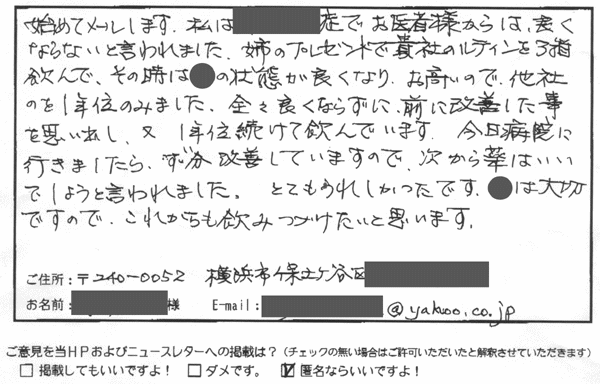 始めてメールします。私は 症で、お医者様からは、良く
ならないと言われました。姉のプレゼントで貴社のルティンを3箱
飲んで、その時は の状態が良くなり、お高いので、他社
のを1年位のみました。全々良くならずに、前に改善した事
を思い出し、又 1年位続けて飲んでいます。今日病院に
行きましたら、ず分改善していますので、次から薬はいい
でしょうと言われました。とてもうれしかったです。 は大切
ですので、これからも飲みつづけたいと思います。
ご住所：〒240-0052 横浜市保土ヶ谷区
お名前： 様 E-mail： @yahoo.co.jp
ご意見を当HPおよびニュースレターへの掲載は？（チェックの無い場合はご許可いただいたと解釈させていただきます）
□ 掲載してもいいですよ！ □ ダメです。 ☑ 匿名ならいいですよ！